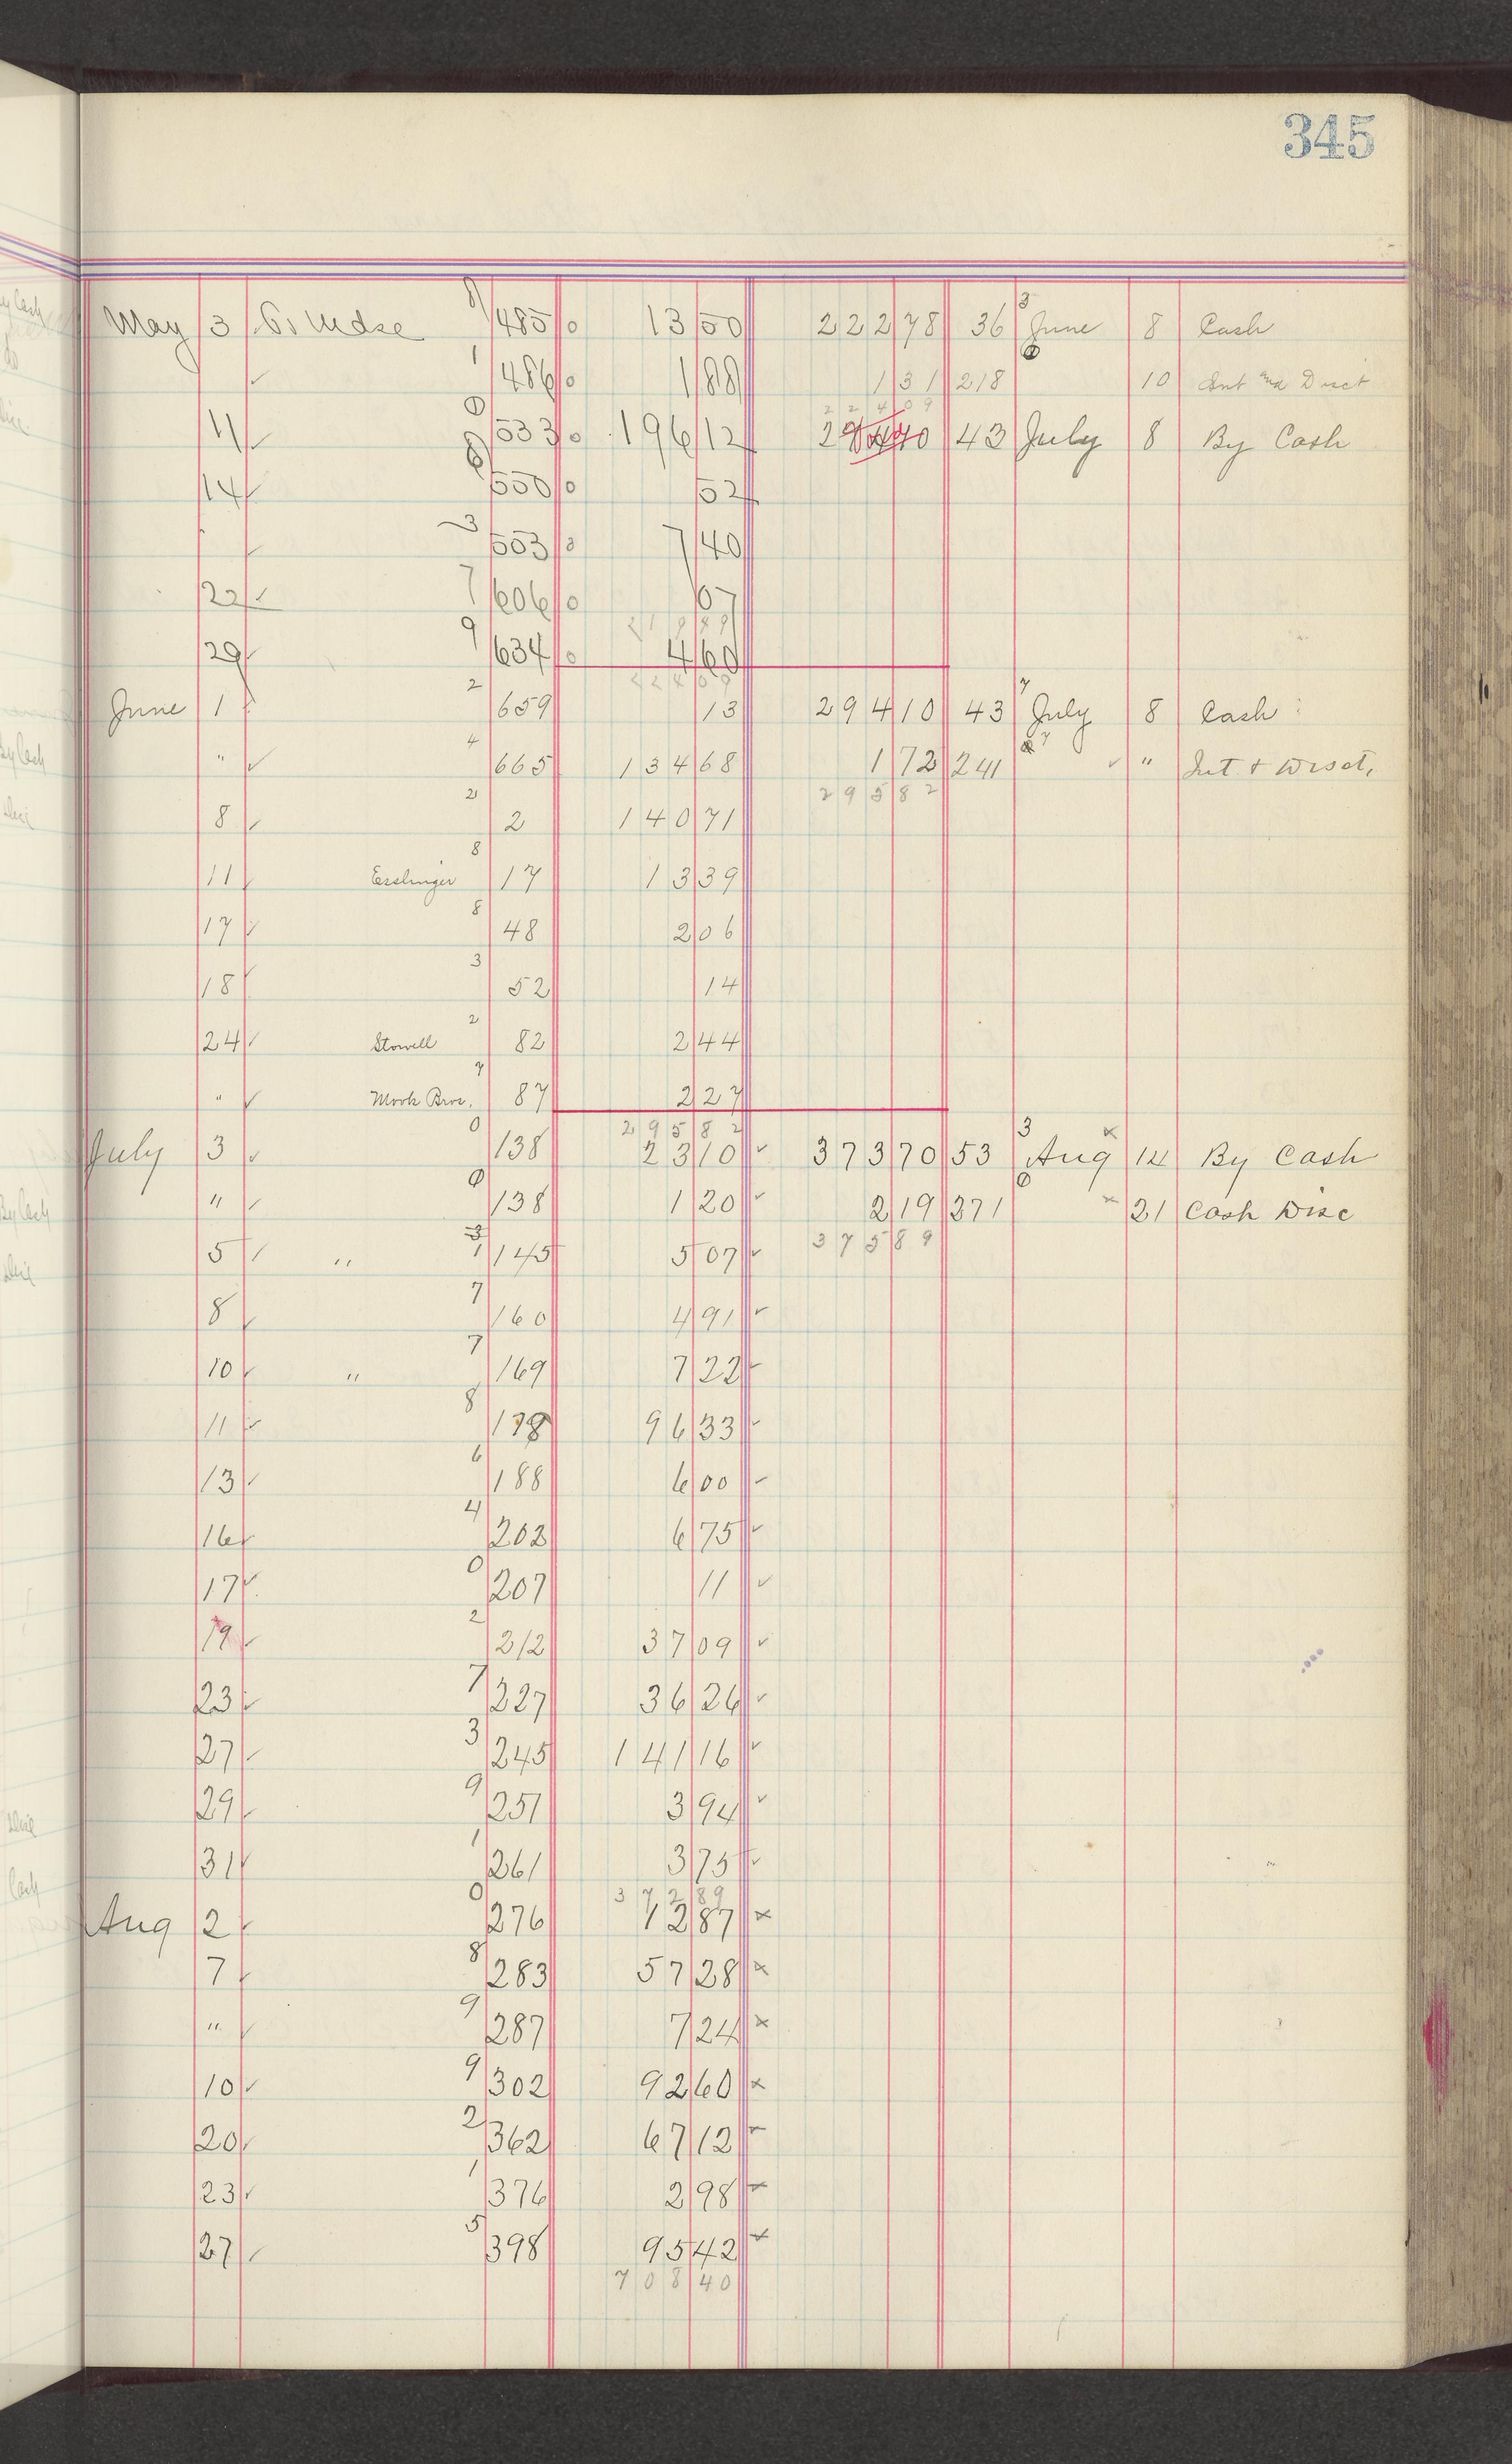 345
May 3 To Mdse 8 485 0 13 50 222 78 36 3 June 8 Cash
✓ 1 486 0 1 88 1 31 218 0 10 Int and Disct
224 09
11 ✓ 0 533 0 196 12 43 July 8 By Cash
14 ✓ 8 550 0 52
✓ 3 553 0 7 40
22 ✓ 7 606 0 07
219 49
29 ✓ 9 634 0 4 60
224 09
June 1 ✓ 2 659 13 294 10 43 7 July 8 Cash
" ✓ 4 665 134 68 1 72 241 ✓ " Int & Disct,
295 82
8 ✓ 2 2 140 71
11 ✓ Esslinger 8 17 13 39
17 ✓ 8 48 2 06
18 ✓ 3 52 14
24 ✓ Stowell 2 82 2 44
" ✓ Mook Bros. 7 87 2 27
295 82
July 3 ✓ 0 138 23 10 ✓ 373 70 53 3 Aug × 14 By Cash
" ✓ 0 138 1 20 ✓ 2 19 271 0 × 21 Cash Disc
375 89
5 ✓ " 145 5 07 ✓
8 ✓ 7 160 4 91 ✓
10 ✓ " 7 169 7 22 ✓
11 ✓ 8 178 96 33 ✓
13 ✓ 6 188 6 00 ✓
16 ✓ 4 202 6 75 ✓
17 ✓ 0 207 11 ✓
19 ✓ 2 212 37 09 ✓
23 ✓ 7 227 36 26 ✓
27 ✓ 3 245 141 16 ✓
29 ✓ 9 251 3 94 ✓
31 ✓ 1 261 3 75 ✓
372 89
Aug 2 ✓ 0 276 12 87 ×
7 ✓ 8 283 57 28 ×
" ✓ 9 287 7 24 ×
10 ✓ 9 302 92 60 ×
20 ✓ 2 362 67 12 ×
23 ✓ 1 376 2 98 ×
27 ✓ 5 398 95 42 ×
708 40